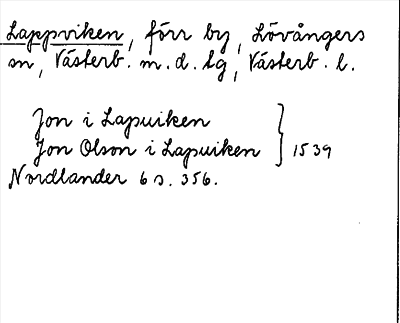 Lappviken, förr by, Lövångers
sn, Västerb. m. d. lg, Västerb. l.
Jon i Lapuiken
Jon Olson i Lapuiken } 1539
Nordlander 6 s. 356.